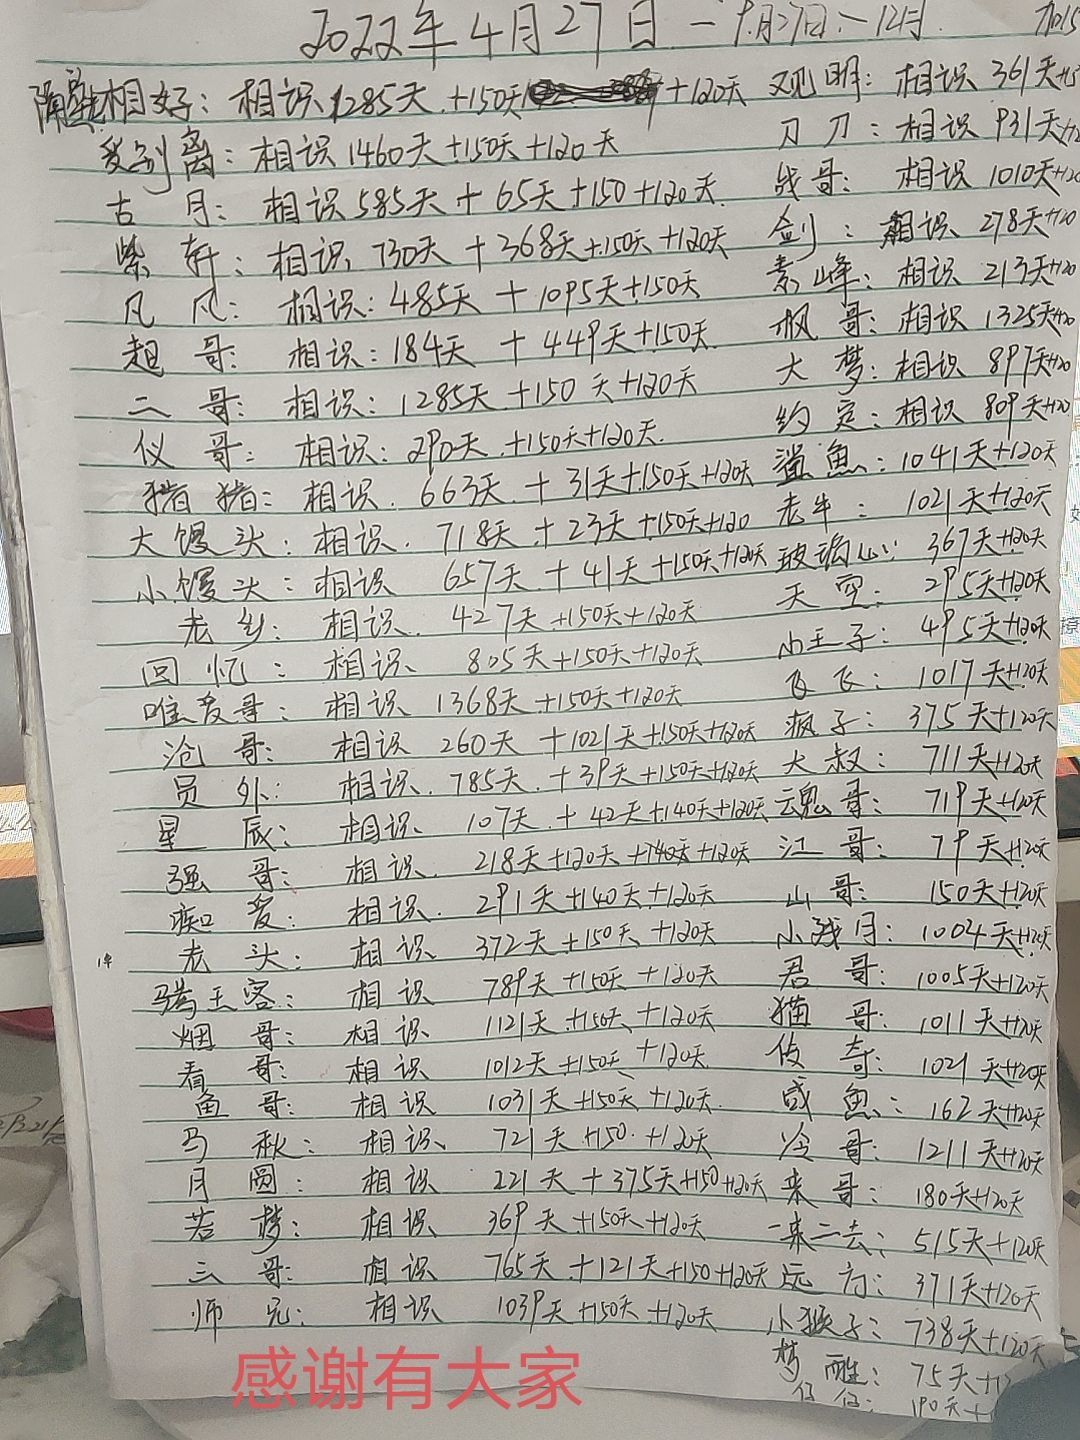 2022年4月27日－9月27日、－12月.
隔壁相好：相识1285天+150天+120天
爱别离：相识1460天+150天+120天
古月：相识585天+65天+150+120天
紫轩：相识730天+368天+150天+120天
凡凡：相识：485天+1095天+150天
超哥：相识：184天+449天+150天
二哥：相识：1285天+150天+120天
仪哥：相识：290天+150天+120天.
猪猪：相识.663天+31天+150天+120天
大馒头：相识.718天+23天+150天+120
小馒头：相识657天+41天+150天+120天
老乡：相识.427天+150天+120天
回忆：相识805天+150天+120天
唯爱哥：相识1368天+150天+120天
沧哥：相识260天+1021天+150天+120天
员外：相识.785天+39天+150天+120天
星辰：相识107天+42天+140天+120天
强哥：相识.218天+120天+140天+120天
痴爱：相识.291天+140天+120天
老头：相识372天+150天+120天
1年
骑士客：相识789天+150天+120天
烟哥：相识1121天+150天+120天
看哥：相识1012天+150天+120天
鱼哥：相识1031天+150天+120天
马秋：相识721天+150+120天
月圆：相识221天+375天+150+120天
若梦：相识369天+150天+120天
三哥：相识765天+121天+150+120天
师兄：相识1039天+150天+120天
观明：相识361天
刀刀：相识931天
战哥：相识1010天+120
剑：相识278天+120
素峰：相识213天+120
枫哥：相识1325天+120
大梦：相识897天+120
约定：相识809天+120
鲨鱼：1041天+120天
老牛：1021天+120天
玻璃心：367天+120天
天空：295天+120天
小王子：495天+120天
飞飞：1017天+120天
疯子：375天+120天
大叔：711天+120天
魂哥：719天+120天
江哥：79天+120天
山哥：150天+120天
小残月：1004天+120天
君哥：1005天+120天
猫哥：1011天+120天
俊奇：1021天+120天
咸鱼：162天+120天
冷哥：1211天+120天
来哥：180天+120天
一来二去：515天+120天
远方：371天+120天
小猴子：738天+120天
梦醒：75天
仔仔：190天
感谢有大家